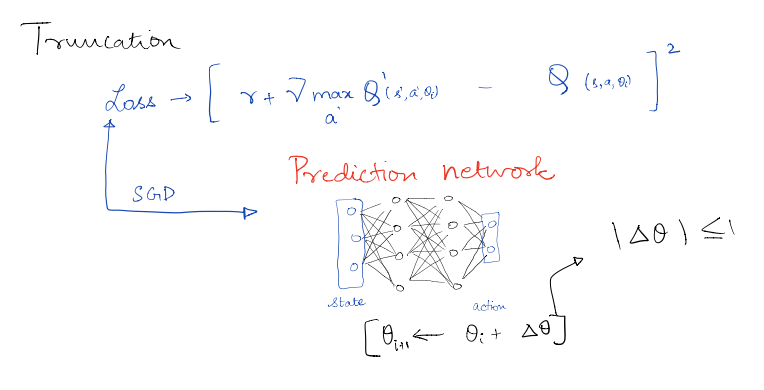 Truncation
Loss → [ r + γ max Q'(s', a', θi) - Q (s, a, θi) ]²
a'
Prediction network
SGD
|Δθ| ≤ 1
state
action
[θi+1 ← θi + Δθ]